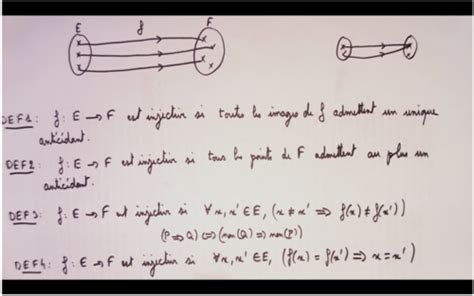 E f F
DEF1: f: E → F est injectif si toutes les images de f admettent un unique
antécédent.
DEF2: f: E → F est injectif si tous les points de F admettent au plus un
antécédent.
DEF3: f: E → F est injectif si ∀x,x' ∈ E, (x ≠ x' ⇒ f(x) ≠ f(x'))
(P ⇒ Q) ⇔ (non(Q) ⇒ non(P))
DEF4: f: E → F est injectif si ∀x,x' ∈ E, (f(x) = f(x') ⇒ x = x')